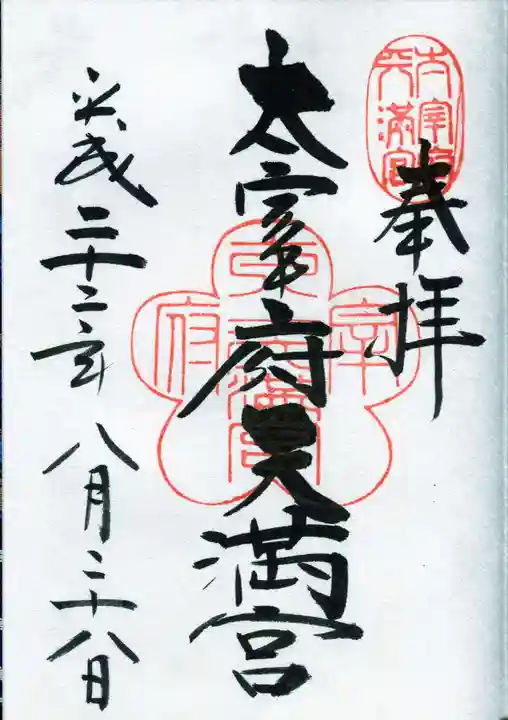 太宰府天満宮
奉拝
太宰府天満宮
平成二十二年八月二十八日